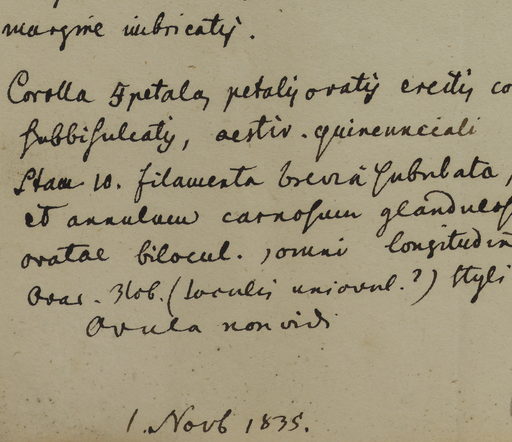 margine imbricatis.
Corolla 5petala, petalis ovatis erectis co
subbisulcatis, aestiv. quincunciali
Stam 10. filamenta brevia subulata,
et annulum carnosum glandulos
ovatae bilocul., omni longitudin
Ovar. 3lob. (loculis uniovul.?) Styli
Ovula non vidi
1. Novb 1835.